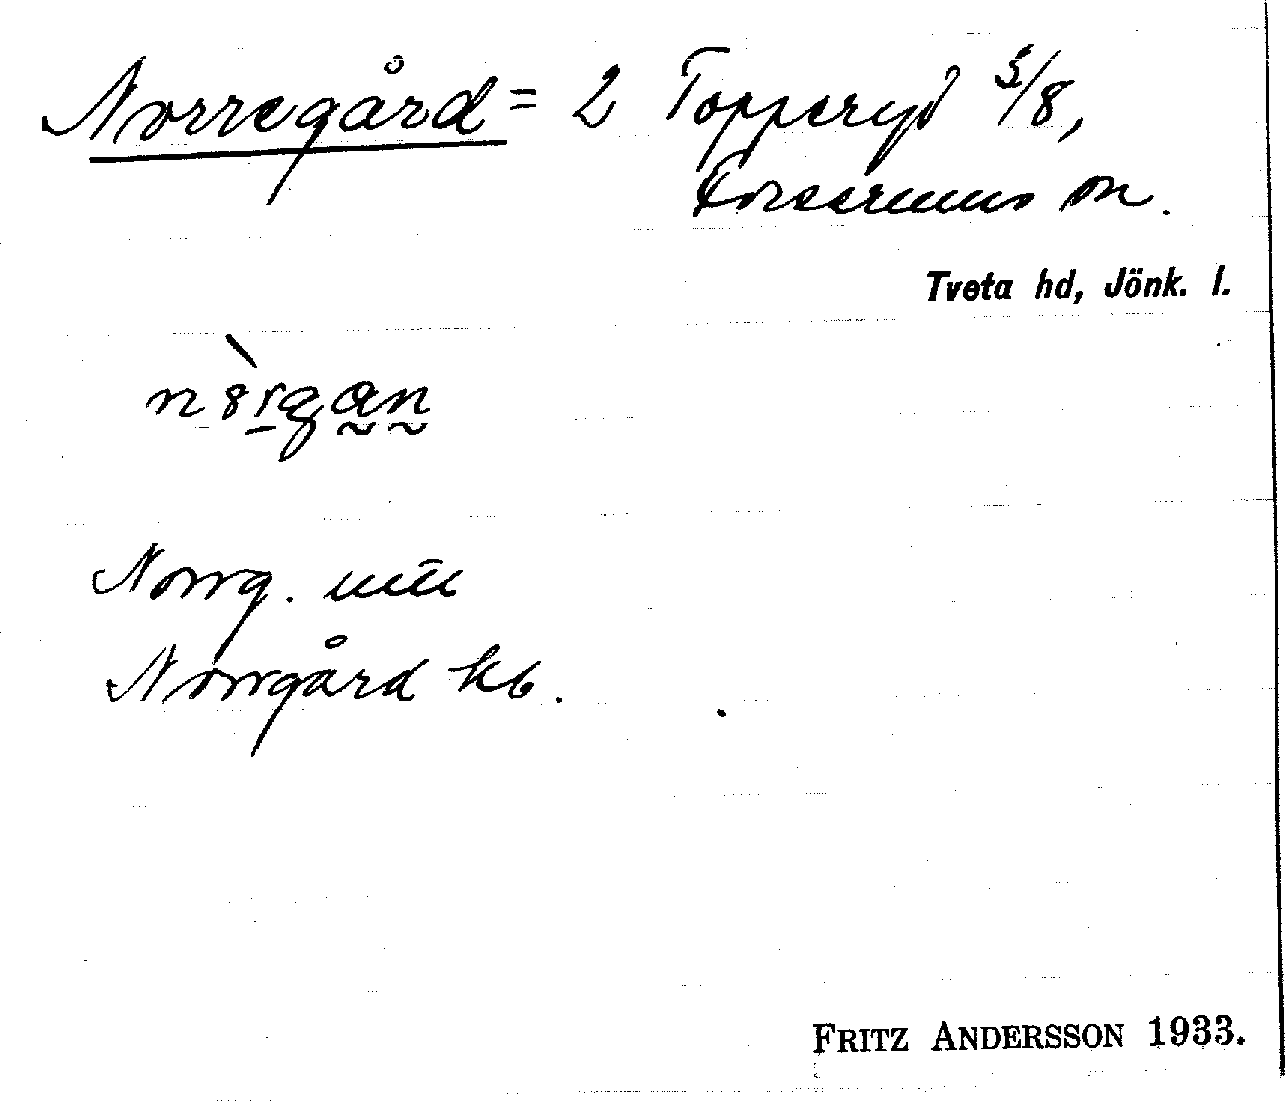 Norregård = 2 Topperyd 5/8,
Forserums sn.
Tveta hd, Jönk. l.
Norrg.
Norrgård kb.
FRITZ ANDERSSON 1933.